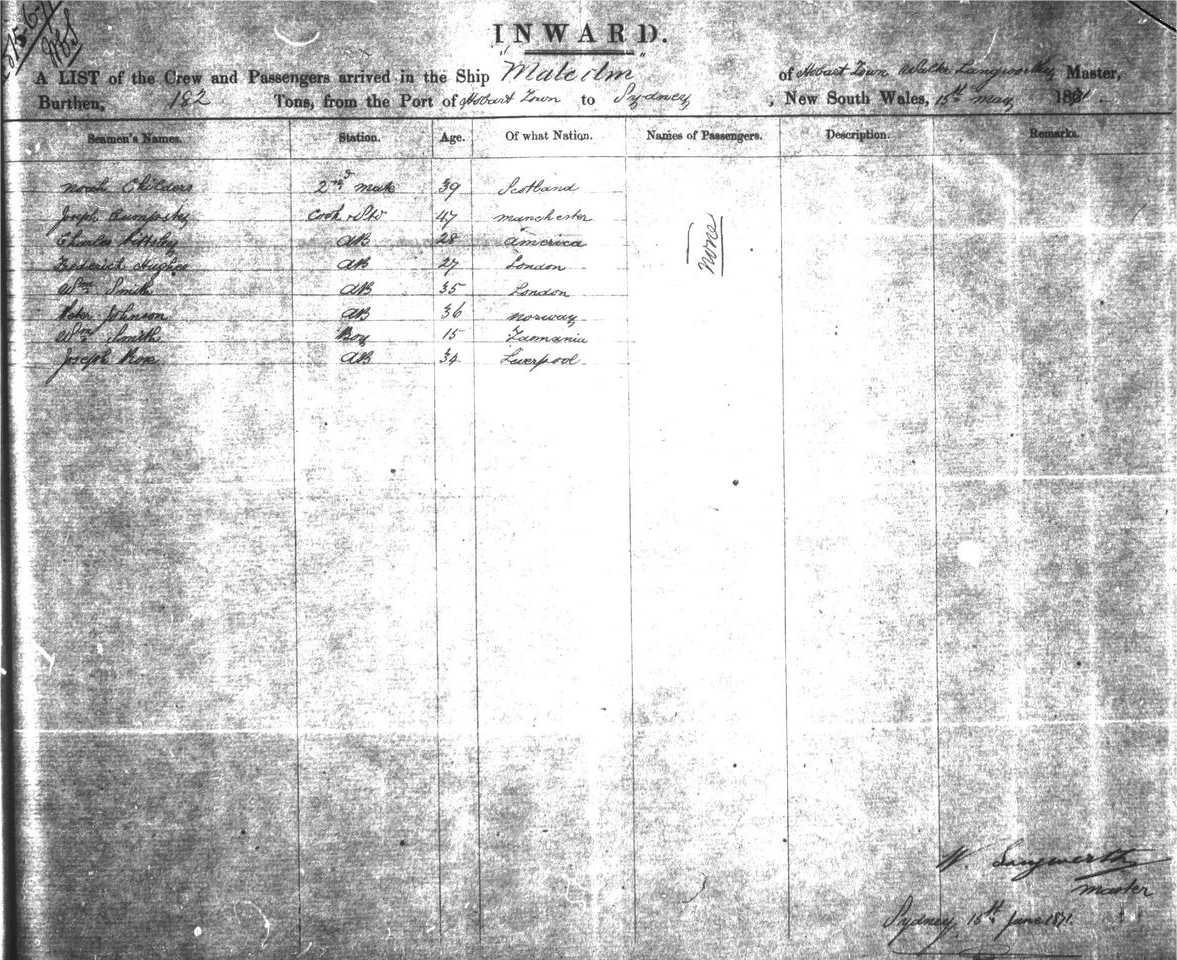 INWARD.
A LIST of the Crew and Passengers arrived in the Ship "Malcolm" of Hobart Town Walter Langworthy Master,
Burthen, 182 Tons, from the Port of Hobart Town to Sydney, New South Wales, 15th May 1871.
Seamen's Names. Station. Age. Of what Nation. Names of Passengers. Description. Remarks.
Noah Childers 2nd Mate 39 Scotland
Joseph Cook & Stw 47 Manchester
Charles 28 AB America
Frederick Hughes AB 27 London
Wm Smith AB 35 London
Peter Johnson AB 36 Norway
Wm Smith Boy 15 Tasmania
Joseph AB 34 Liverpool
None
W Langworthy
Master
Sydney, 15th June 1871.